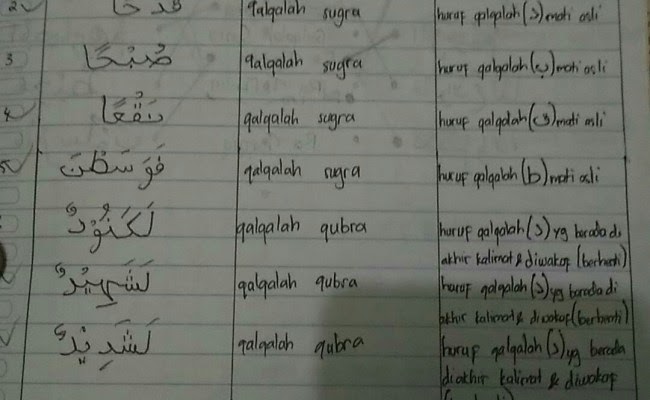 2 قدحا qalqalah sugra huruf qalqalah (د) mati asli
3 صُبْحًا qalqalah sugra huruf qalqalah (ب) mati asli
4 نَقْعًا qalqalah sugra huruf qalqalah (ق) mati asli
5 فَوَسَطْنَ qalqalah sugra huruf qalqalah (ط) mati asli
لَكَنُوْدٌ qalqalah qubra huruf qalqalah (د) yg berada di
akhir kalimat & diwakof (berhenti)
لَشَهِيْدٌ qalqalah qubra huruf qalqalah (د) yg berada di
akhir kalimat & diwakof (berhenti)
لَشَدِيْدٌ qalqalah qubra huruf qalqalah (د) yg berada
diakhir kalimat & diwakof